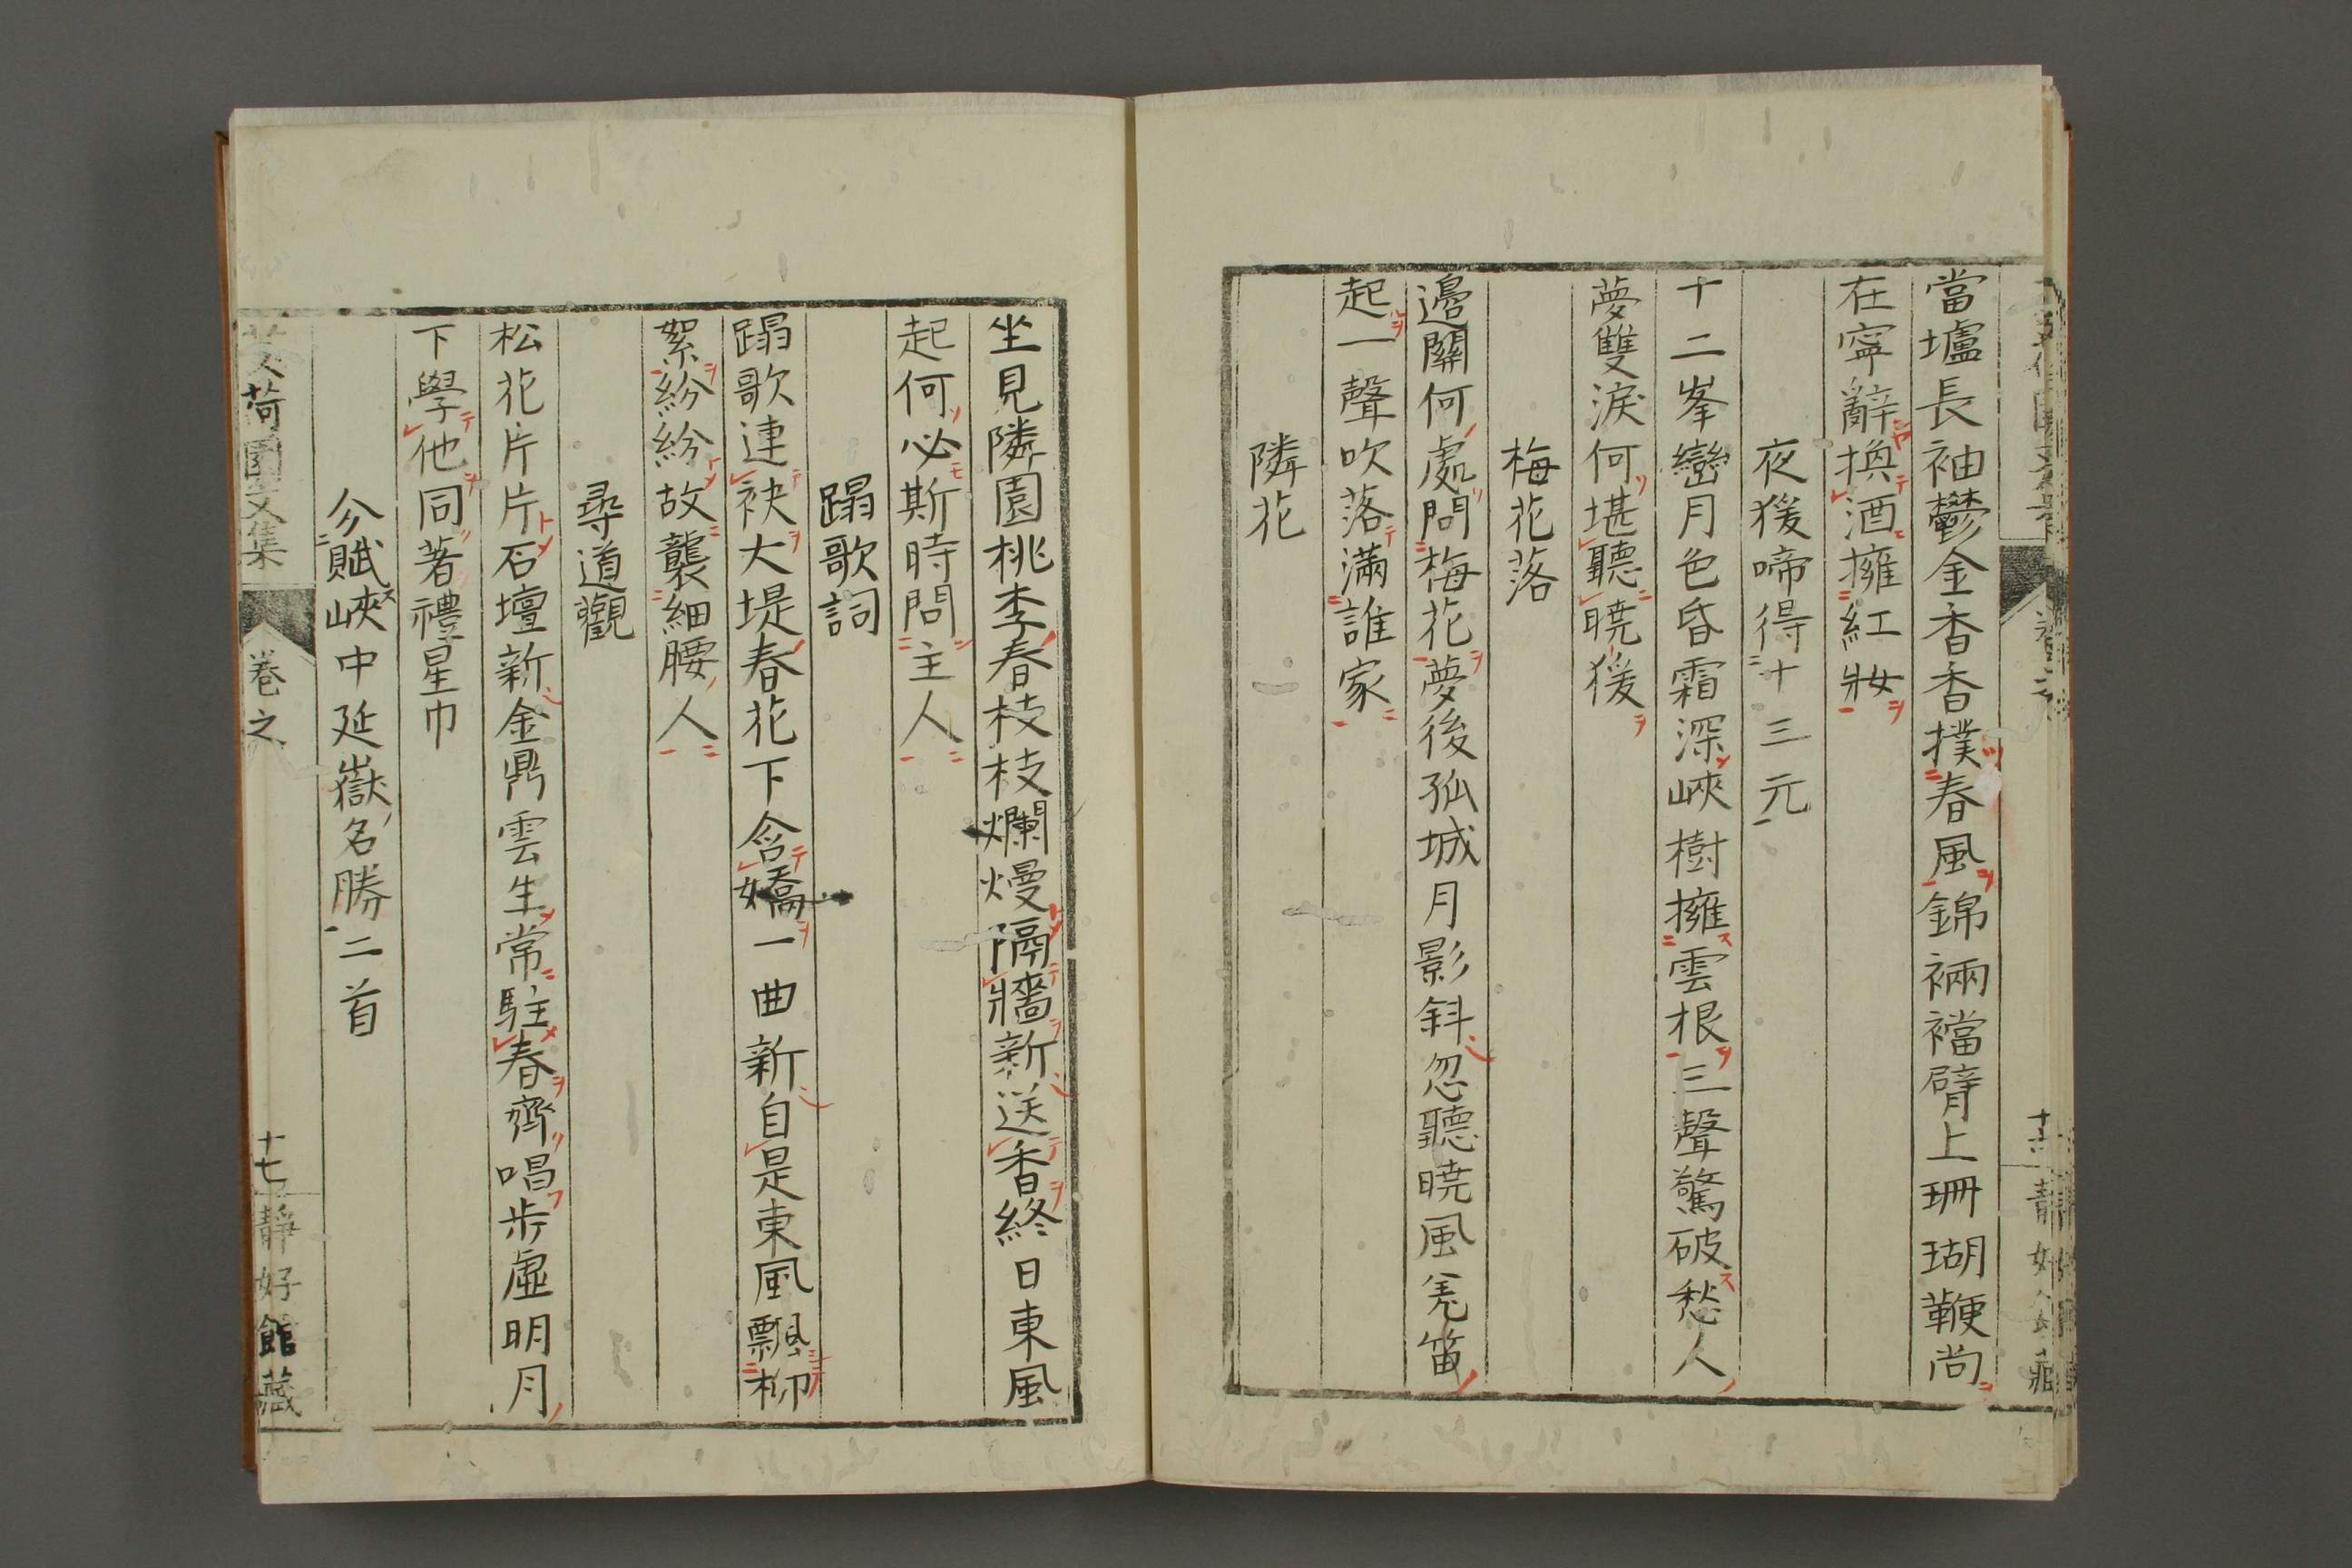 當壚長袖鬱金香香撲春風錦裲襠臂上珊瑚鞭尚
在寧辭換酒擁紅妝
夜猨啼得十三元
十二峯巒月色昏霜深峽樹擁雲根三聲驚破愁人
夢雙淚何堪聽曉猨
梅花落
邊關何處問梅花夢後孤城月影斜忽聽曉風羌笛
起一聲吹落滿誰家
隣花
坐見隣園桃李春枝枝爛熳隔牆新送香終日東風
起何必斯時問主人
蹋歌詞
蹋歌連袂大堤春花下含嬌一曲新自是東風飄柳
絮紛紛故襲細腰人
尋道觀
松花片片石壇新金鼎雲生常駐春齊唱步虛明月
下學他同著禮星巾
分賦峽中延嶽名勝二首
荷園文集
卷之
十七
靜好館藏